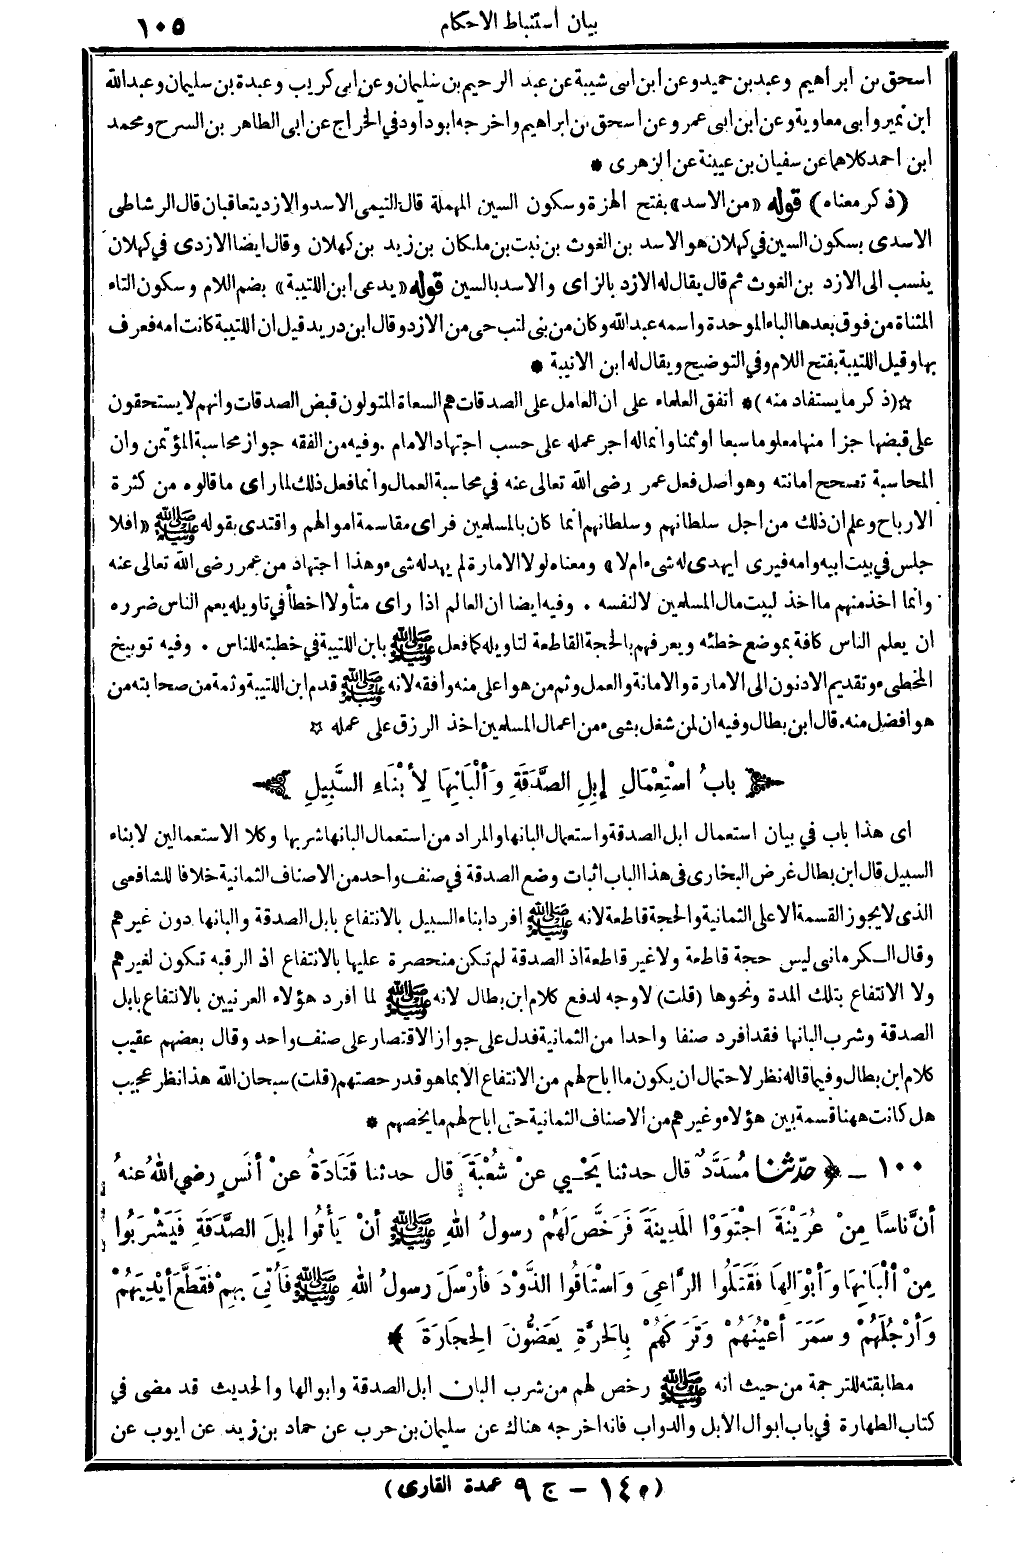 بيان استنباط الاحكام ١٠٥
اسحق بن ابراهيم وعبد بن حميد وعن ابن ابى شيبة عن عبد الرحيم بن سليمان وعن ابى كريب وعبدة بن سليمان وعبدالله
ابن نمير وابى معاوية وعن ابن ابى عمر وعن اسحق بن ابراهيم واخرجه ابو داود فى الخراج عن ابى الطاهر بن السرح ومحمد
ابن احمد كلاهما عن سفيان بن عيينة عن الزهرى *
(ذكر معناه) قوله «من الاسد» بفتح الهمزة وسكون السين المهملة قال التيمى الاسد والازد يتعاقبان قال الرشاطى
الاسدى بسكون السين في كهلان هو الاسد بن الغوث بن نبت بن ملكان بن زيد بن كهلان وقال ايضا الازدى في كهلان
ينسب الى الازد بن الغوث ثم قال يقال له الازد بالزاى والاسد بالسين قوله «يدعى ابن اللتيبة» بضم اللام وسكون التاء
المثناة من فوق بعدها الباء الموحدة واسمه عبدالله وكان من بنى لتب حى من الازد وقال ابن دريد قيل ان اللتيبة كانت امه فعرف
بها وقيل اللتيبة بفتح اللام وفي التوضيح ويقال له ابن الاتيبة *
☆(ذكر ما يستفاد منه)* اتفق العلماء على ان العامل على الصدقات هم السعاة المتولون قبض الصدقات وانهم لا يستحقون
على قبضها جزأ منها معلوما سبعا او ثمنا وانماله اجر عمله على حسب اجتهاد الامام . وفيه من الفقه جواز محاسبة المؤتمن وان
المحاسبة تصحح امانته وهو اصل فعل عمر رضى الله تعالى عنه في محاسبة العمال وانما فعل ذلك لما راى ما قالوه من كثرة
الارباح وعلم ان ذلك من اجل سلطانهم وسلطانهم انما كان بالمسلمين فراى مقاسمة اموالهم واقتدى بقوله ﷺ «افلا
جلس في بيت ابيه وامه فيرى ايهدى له شىء ام لا» ومعناه لولا الامارة لم يهد له شىء وهذا اجتهاد من عمر رضى الله تعالى عنه
وانما اخذ منهم ما اخذ لبيت مال المسلمين لا لنفسه . وفيه ايضا ان العالم اذا راى متأولا اخطأ في تاويله يعم الناس ضرره
ان يعلم الناس كافة بموضع خطئه ويعرفهم بالحجة القاطعة لتاويله كما فعل ﷺ بابن اللتيبة في خطبته للناس . وفيه توبيخ
المخطىء وتقديم الادنون الى الامارة والامانة والعمل وثم من هو اعلى منه وافقه لانه ﷺ قدم ابن اللتيبة وثمة من صحابته من
هو افضل منه. قال ابن بطال وفيه ان لمن شغل بشىء من اعمال المسلمين اخذ الرزق على عمله ☆
بابُ اسْتِعْمَالِ إبِلِ الصَّدَقَةِ وَأَلْبَانِهَا لِأبْنَاءِ السَّبِيلِ
اى هذا باب في بيان استعمال ابل الصدقة واستعمال البانها والمراد من استعمال البانها شربها وكلا الاستعمالين لابناء
السبيل قال ابن بطال غرض البخارى فى هذا الباب اثبات وضع الصدقة في صنف واحد من الاصناف الثمانية خلافا للشافعى
الذى لا يجوز القسمة الا على الثمانية والحجة قاطعة لانه ﷺ افرد ابناء السبيل بالانتفاع بابل الصدقة والبانها دون غيرهم
وقال الكرمانى ليس حجة قاطعة ولا غير قاطعة اذ الصدقة لم تكن منحصرة عليها بالانتفاع اذ الرقبه تكون لغيرهم
ولا الانتفاع بتلك المدة ونحوها (قلت) لا وجه لدفع كلام ابن بطال لانه ﷺ لما افرد هؤلاء العرنيين بالانتفاع بابل
الصدقة وشرب البانها فقد افرد صنفا واحدا من الثمانية فدل على جواز الاقتصار على صنف واحد وقال بعضهم عقيب
كلام ابن بطال وفيما قاله نظر لاحتمال ان يكون ما اباح لهم من الانتفاع الا بما هو قدر حصتهم (قلت) سبحان الله هذا نظر عجيب
هل كانت ههنا قسمة بين هؤلاء وغيرهم من الاصناف الثمانية حتى اباح لهم ما يخصهم *
١٠٠ - ﴿ حدّثنا مُسَدَّدٌ قال حدثنا يَحْيى عنْ شُعْبَةَ قال حدثنا قَتَادَةُ عنْ أنَسٍ رضي اللهُ عنهُ
أنَّ ناسًا مِنْ عُرَيْنَةَ اجْتَوَوُا المَدِينَةَ فَرَخَّصَ لَهُمْ رسولُ اللهِ ﷺ أنْ يَأْتُوا إبِلَ الصَّدَقَةِ فَيَشْرَبُوا
مِنْ ألْبَانِهَا وَأبْوَالِهَا فَقَتَلُوا الرَّاعِيَ وَاسْتَاقُوا الذَّوْدَ فأرْسَلَ رسولُ اللهِ ﷺ فَأُتِيَ بِهِمْ فَقَطَّعَ أيْدِيَهُمْ
وَأرْجُلَهُمْ وسَمَرَ أعْيُنَهُمْ وَتَرَكَهُمْ بِالحَرَّةِ يَعَضُّونَ الحِجَارَةَ ﴾
مطابقته للترجمة من حيث انه ﷺ رخص لهم من شرب البان ابل الصدقة وابوالها والحديث قد مضى في
كتاب الطهارة في باب ابوال الابل والدواب فانه اخرجه هناك عن سليمان بن حرب عن حماد بن زيد عن ايوب عن
(م١٤ - ج ٩ عمدة القارى)